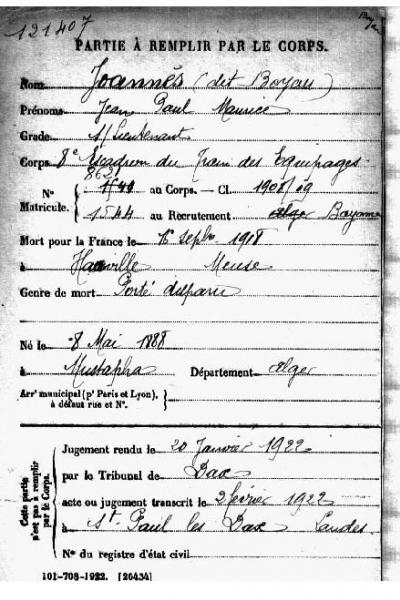 121407
PARTIE À REMPLIR PAR LE CORPS.
Nom Joannès (dit Boyau)
Prénoms Jean Paul Maurice
Grade S/Lieutenant
Corps 8e Escadron du Train des Equipages
862
N° 1749 au Corps. — Cl. 1908/09
Matricule. 1544 au Recrutement Alger Bayonne
Mort pour la France le 16 septbre 1918
à Haville Meuse
Genre de mort Porté disparu
Né le 8 Mai 1888
à Mustapha Département Alger
Arrt municipal (pr Paris et Lyon),
à défaut rue et N°.
Cette partie
n'est pas à remplir
par le Corps.
Jugement rendu le 20 Janvier 1922
par le Tribunal de Dax
acte ou jugement transcrit le 2 février 1922
à St Paul les Dax Landes
N° du registre d'état civil
101-708-1922. [26434]